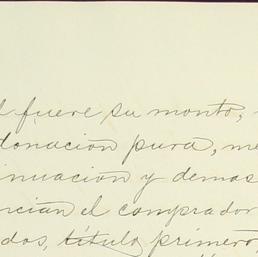 l fuere su monto,
donación pura, me
inuación y demas
ncian el comprador
dos, título primero,